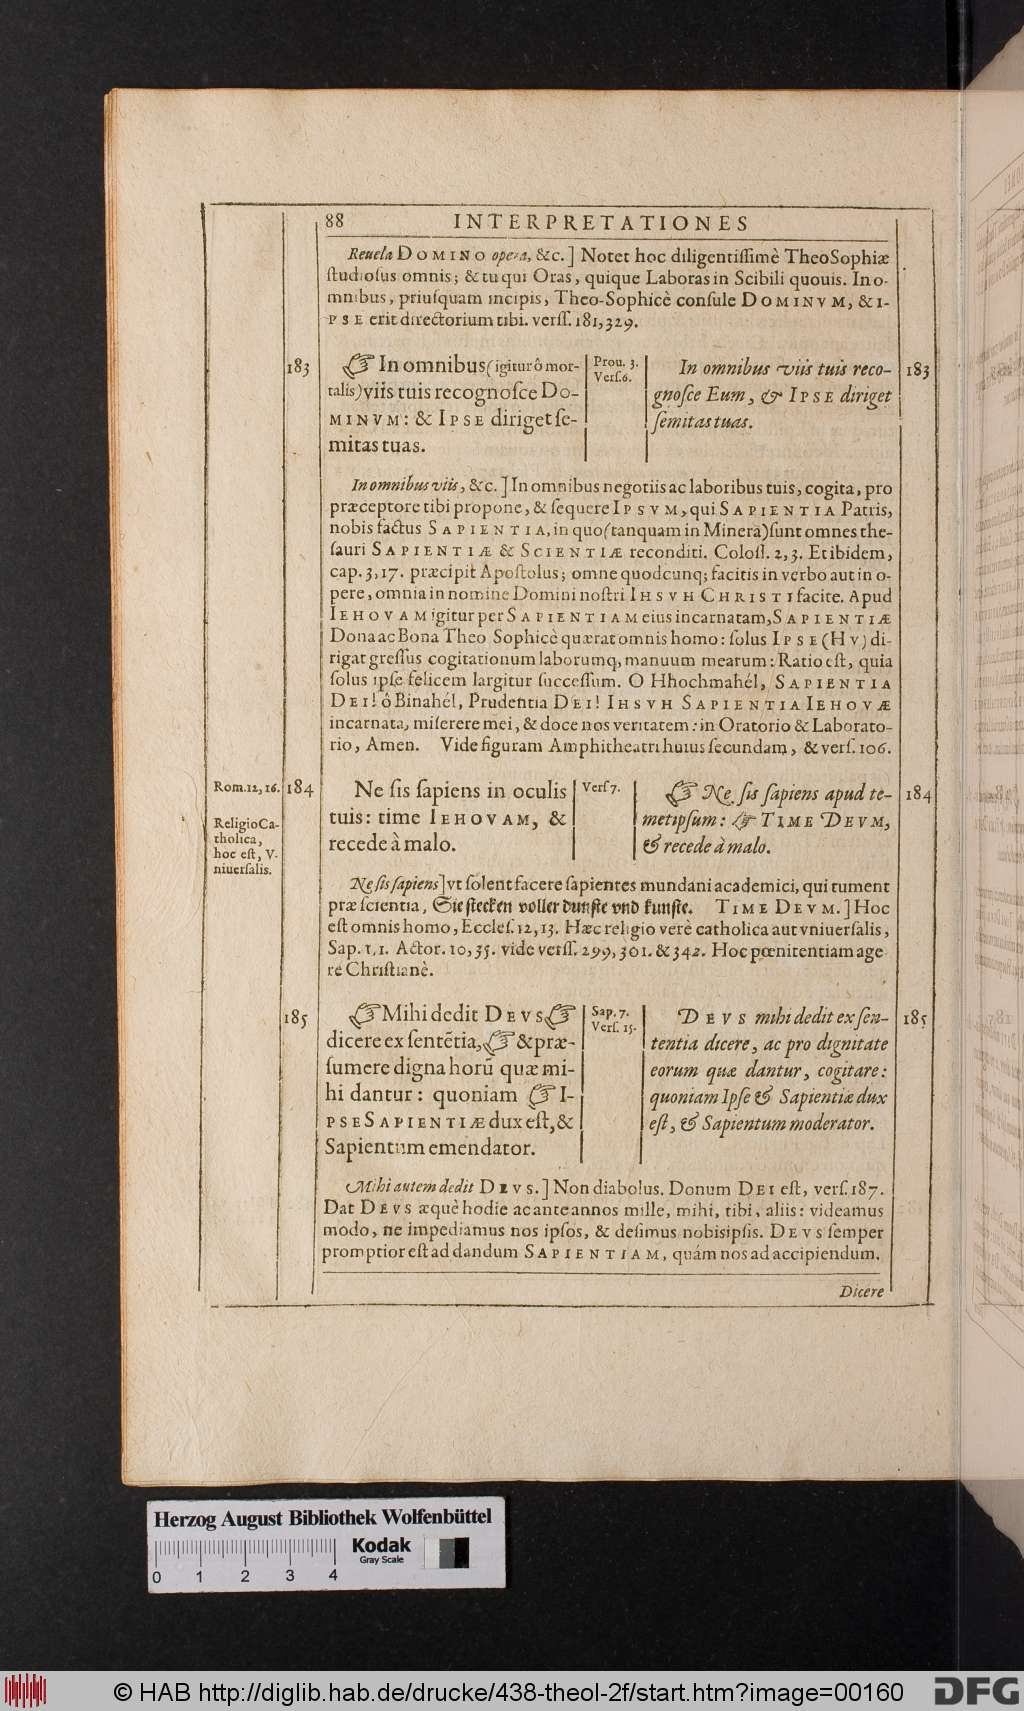 88 INTERPRETATIONES
Reuela DOMINO opera, &c.] Notet hoc diligentiſſimè TheoSophiæ
ſtudioſus omnis; & tu qui Oras, quique Laboras in Scibili quouis. In o-
mnibus, priuſquam incipis, Theo-Sophicè conſule DOMINVM, & I-
PSE erit directorium tibi. verſſ. 181, 329.
183
☞ In omnibus (igitur ô mor-
talis) viis tuis recognoſce DO-
MINVM: & IPSE diriget ſe-
mitas tuas.
Prou. 3.
Verſ. 6.
In omnibus viis tuis reco-
gnoſce Eum, & IPSE diriget
ſemitas tuas.
183
In omnibus viis, &c.] In omnibus negotiis ac laboribus tuis, cogita, pro
præceptore tibi propone, & ſequere IPSVM, qui SAPIENTIA Patris,
nobis factus SAPIENTIA, in quo (tanquam in Minera) ſunt omnes the-
ſauri SAPIENTIÆ & SCIENTIÆ reconditi. Coloſſ. 2, 3. Et ibidem,
cap. 3, 17. præcipit Apoſtolus; omne quodcunq; facitis in verbo aut in o-
pere, omnia in nomine Domini noſtri IHSVH CHRISTI facite. Apud
IEHOVAM igitur per SAPIENTIAM eius incarnatam, SAPIENTIÆ
Dona ac Bona Theo Sophicè quærat omnis homo: ſolus IPSE (HV) di-
rigat greſſus cogitationum laborumq, manuum mearum: Ratio eſt, quia
ſolus ipſe felicem largitur ſucceſſum. O Hhochmahél, SAPIENTIA
DEI! ô Binahél, Prudentia DEI! IHSVH SAPIENTIA IEHOVÆ
incarnata, miſerere mei, & doce nos veritatem: in Oratorio & Laborato-
rio, Amen. Vide figuram Amphitheatri huius ſecundam, & verſ. 106.
Rom. 12, 16.
Religio Ca-
tholica,
hoc eſt, V-
niuerſalis.
184
Ne ſis ſapiens in oculis
tuis: time IEHOVAM, &
recede à malo.
Verſ 7.
☞ Ne ſis ſapiens apud te-
metipſum: ☞ TIME DEVM,
& recede à malo.
184
Ne ſis ſapiens] vt ſolent facere ſapientes mundani academici, qui tument
præ ſcientia, Sie ſtecken voller dunſte vnd kunſte. TIME DEVM.] Hoc
eſt omnis homo, Eccleſ. 12, 13. Hæc religio verè catholica aut vniuerſalis,
Sap. 1, 1. Actor. 10, 35. vide verſſ. 299, 301. & 342. Hoc pœnitentiam age
re Chriſtianè.
185
☞ Mihi dedit DEVS ☞
dicere ex ſentētia, ☞ & præ-
ſumere digna horū quæ mi-
hi dantur: quoniam ☞ I-
PSE SAPIENTIÆ dux eſt, &
Sapientum emendator.
Sap. 7.
Verſ. 15.
DEVS mihi dedit ex ſen-
tentia dicere, ac pro dignitate
eorum quæ dantur, cogitare:
quoniam Ipſe & Sapientiæ dux
eſt, & Sapientum moderator.
185
Mihi autem dedit DEVS.] Non diabolus. Donum DEI eſt, verſ. 187.
Dat DEVS æquè hodie ac ante annos mille, mihi, tibi, aliis: videamus
modo, ne impediamus nos ipſos, & deſimus nobis ipſis. DEVS ſemper
promptior eſt ad dandum SAPIENTIAM, quám nos ad accipiendum.
Dicere
Herzog August Bibliothek Wolfenbüttel
0 1 2 3 4
Kodak
Gray Scale
© HAB http://diglib.hab.de/drucke/438-theol-2f/start.htm?image=00160
DFG